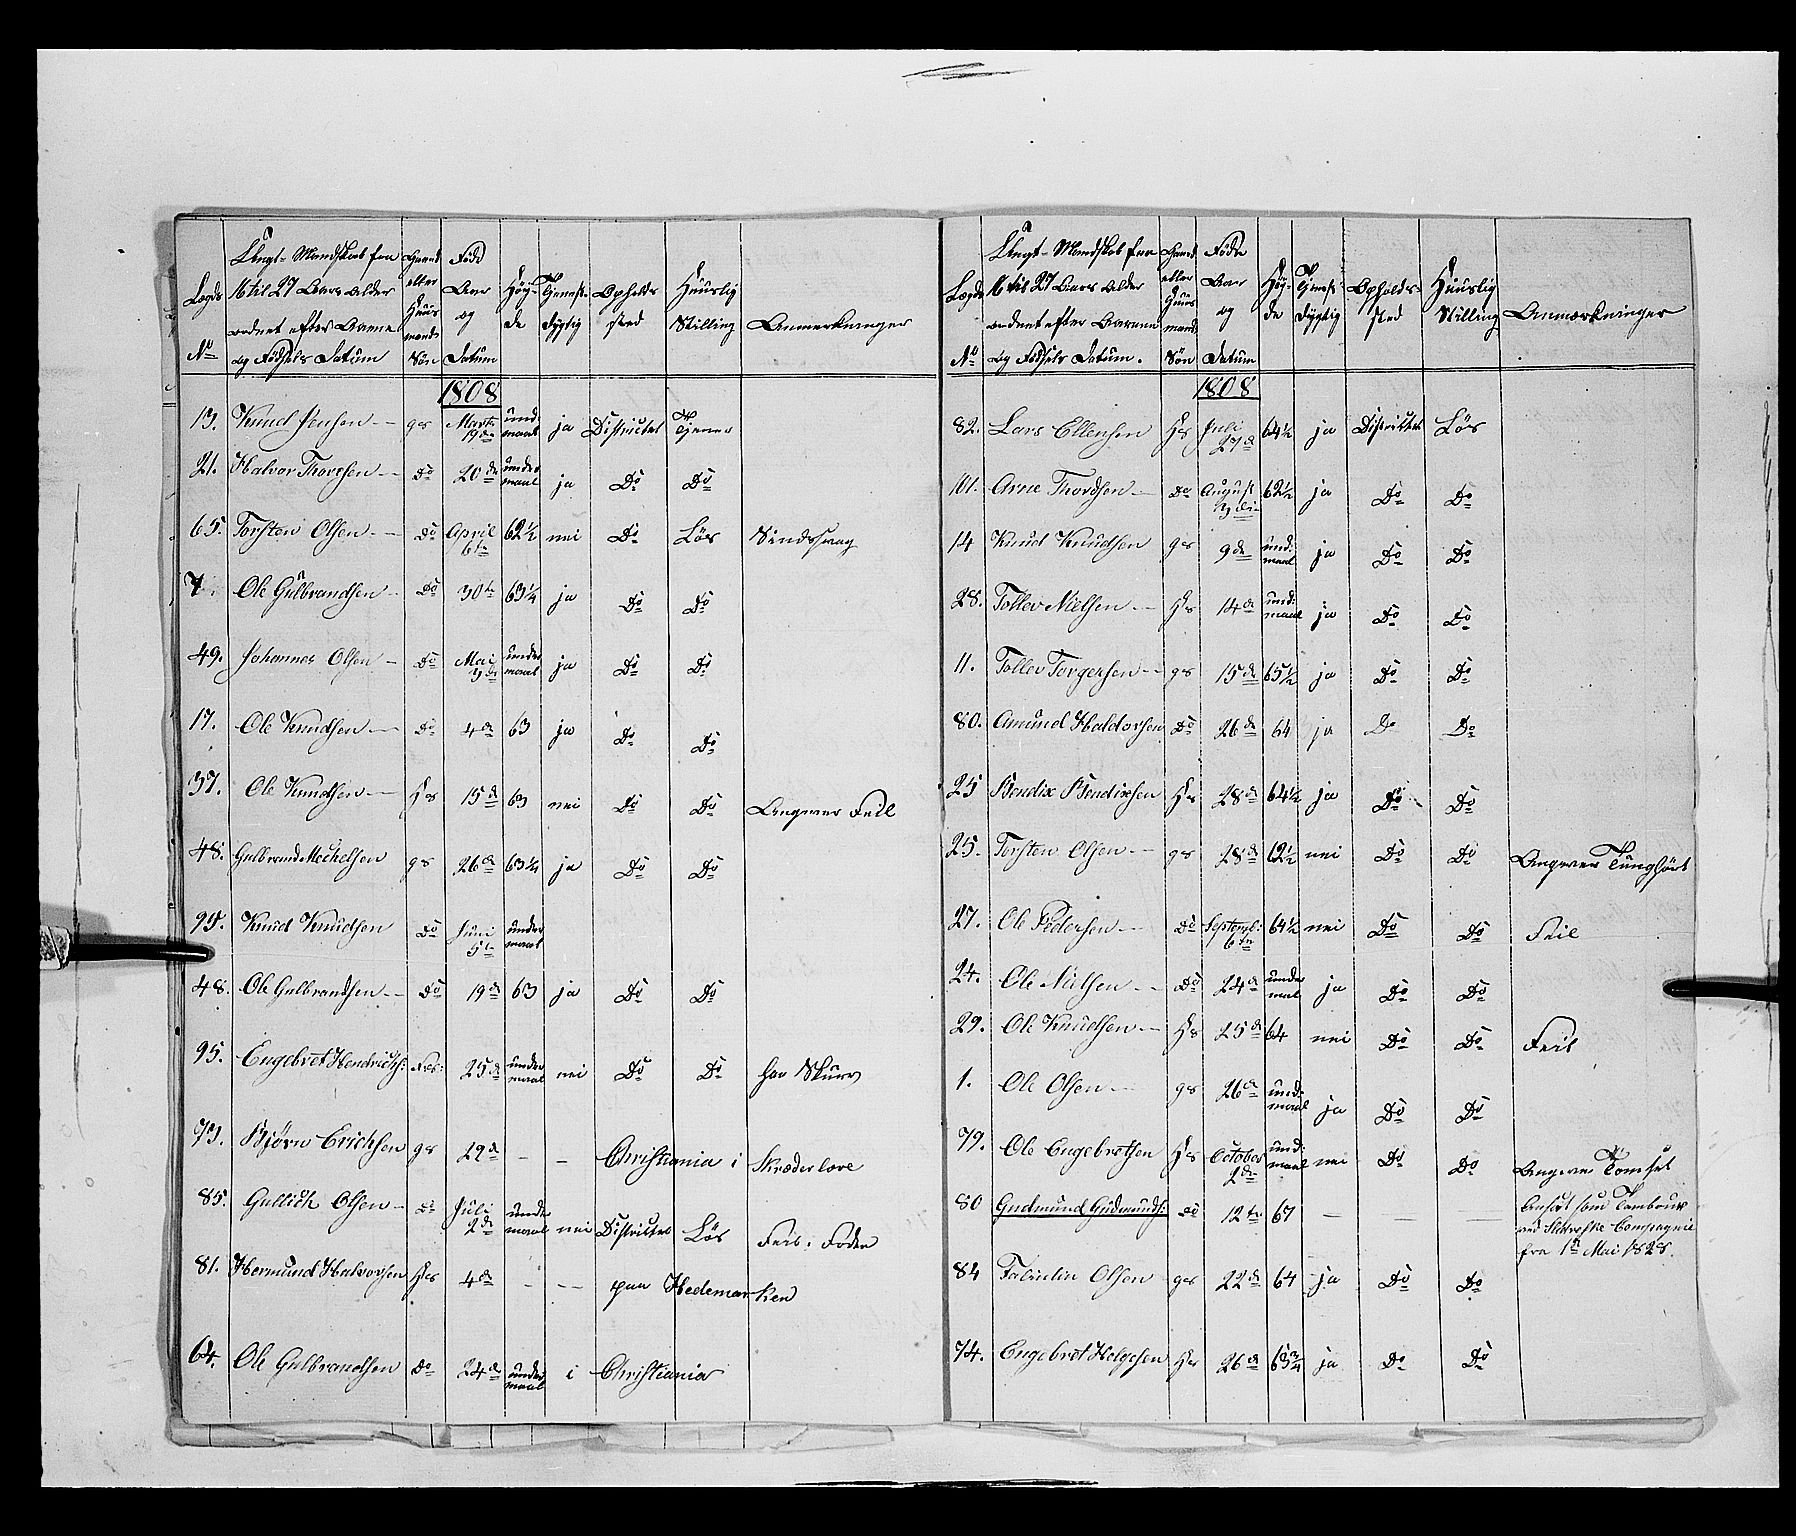 Lægds No | Ungt-Mandskab fra 16 til 27 Aars Alder ordnet efter Aarene og Fødsels Datum | Gaard eller Huusmands Søn | Føde Aar og Datum | Høyde | Tjenestdygtig | Opholdssted | Huuslig Stilling | Anmerkninger
1808
13. Knud Jensen gs Marts 19de undmaal ja Districtet Tjener
21. Halvor Thorsen Do 20de undermaal ja Do Do
65. Torsten Olsen Do April 6te 62½ nei Do Løs Sindssvag
7. Ole Gulbrandsen Do 30te 63¼ ja Do Do
49. Johannes Olsen Do Mai 3die undermaal ja Do Do
17. Ole Knudsen Do 4de 63 ja Do Do
37. Ole Knudsen Hs 15de 63 nei Do Do Angiver Feil
48. Gulbrand Mechelsen gs 26de 63¼ ja Do Do
95. Knud Knudsen Do Juni 5te undermaal
48. Ole Gulbrandsen Do 19de 63 ja Do Do
95. Engebret Hendrichs: Hs: 25de undermaal nei Do Do har Skurv
73. Bjørn Erichsen gs 29de - - Christiania i Skræderlære
85. Gullich Olsen Do Juli 2de undermaal nei Districtet Løs Feil i Foden
81. Hermund Halvorsen Hs 4de - - paa Hedemarken
64. Ole Gulbrandsen Do 24de undermaal i Christiania
Lægds No | Ungt-Mandskab fra 16 til 27 Aars Alder ordnet efter Aarene og Fødsels Datum. | Gaard eller Huusmands Søn | Føde Aar og Datum | Høyde | Tjenestdygtig | Opholdssted | Huuslig Stilling | Anmærkninger
1808
82. Lars Ellensen Hs Juli 27de 64½ ja Districtet Løs
101. Arne Thordsen Do August 3die 62½ ja Do Do
14 Knud Knudsen gs 9de und:maal ja Do Do
28. Tollev Nielsen Hs 14de und:maal ja Do Do
11. Tollev Torgersen gs 15de 65½ ja Do Do
80. Amund Haldorsen Do 26de 64 ja Do Do
25 Bendix Bendixsen Hs 28de 64½ ja Do Do
25. Torsten Olsen gs 28de 62½ nei Do Do Angiver Tunghørt
27. Ole Pedersen Do Septemb: 6te 64½ nei Do Do Feil
24. Ole Nielsen Do 24de undermaal ja Do Do
29. Ole Knudsen Hs 25de 64 nei Do Do Feil
1. Ole Olsen gs 26de und:maal ja Do Do
79. Ole Engebretsen Hs October 2de und:maal nei Do Do Angiver
80 Gudmund Gudmunds: Do 12te 67 - - - Ansat som Tambour ved Compagnie fra 1te Mai 1828.
84 Olsen gs 22de 64 ja Do Do
74. Engebret Helgesen Hs 26de 63¾ ja Do Do